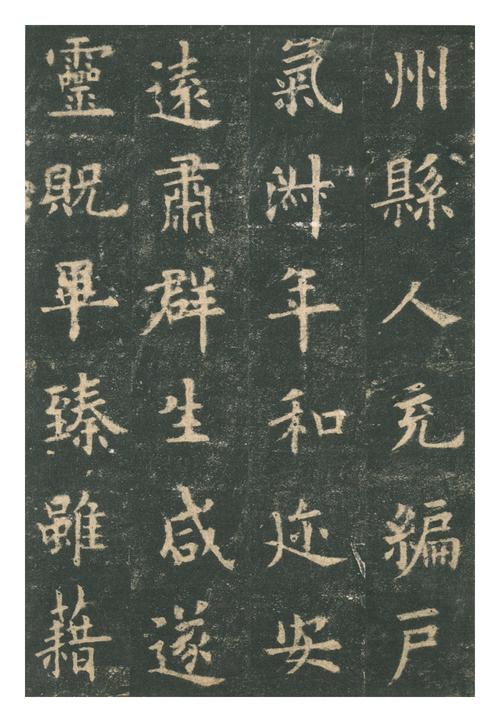 州縣人充編戶
氣淑年和迩安
遠肅群生咸遂
靈貺畢臻雖藉